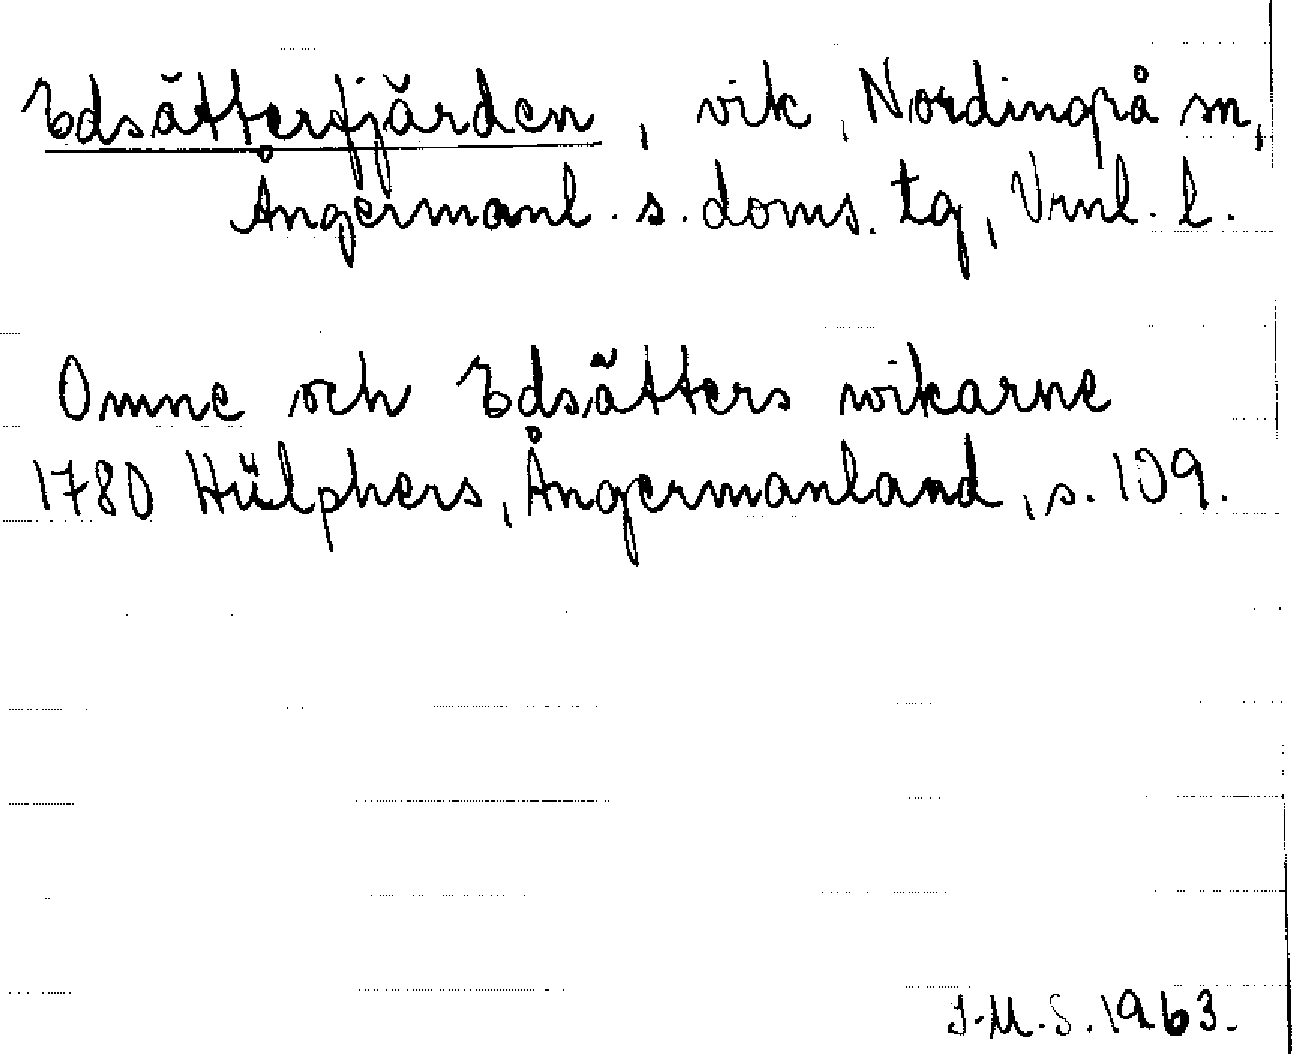 Edsätterfjärden, vik, Nordingrå sn,
Ångermanl. s. doms. tg, Vrnl. l.
Omne och Edsätters wikarne
1780 Hülphers, Ångermanland, s. 109.
I.M.S. 1963.